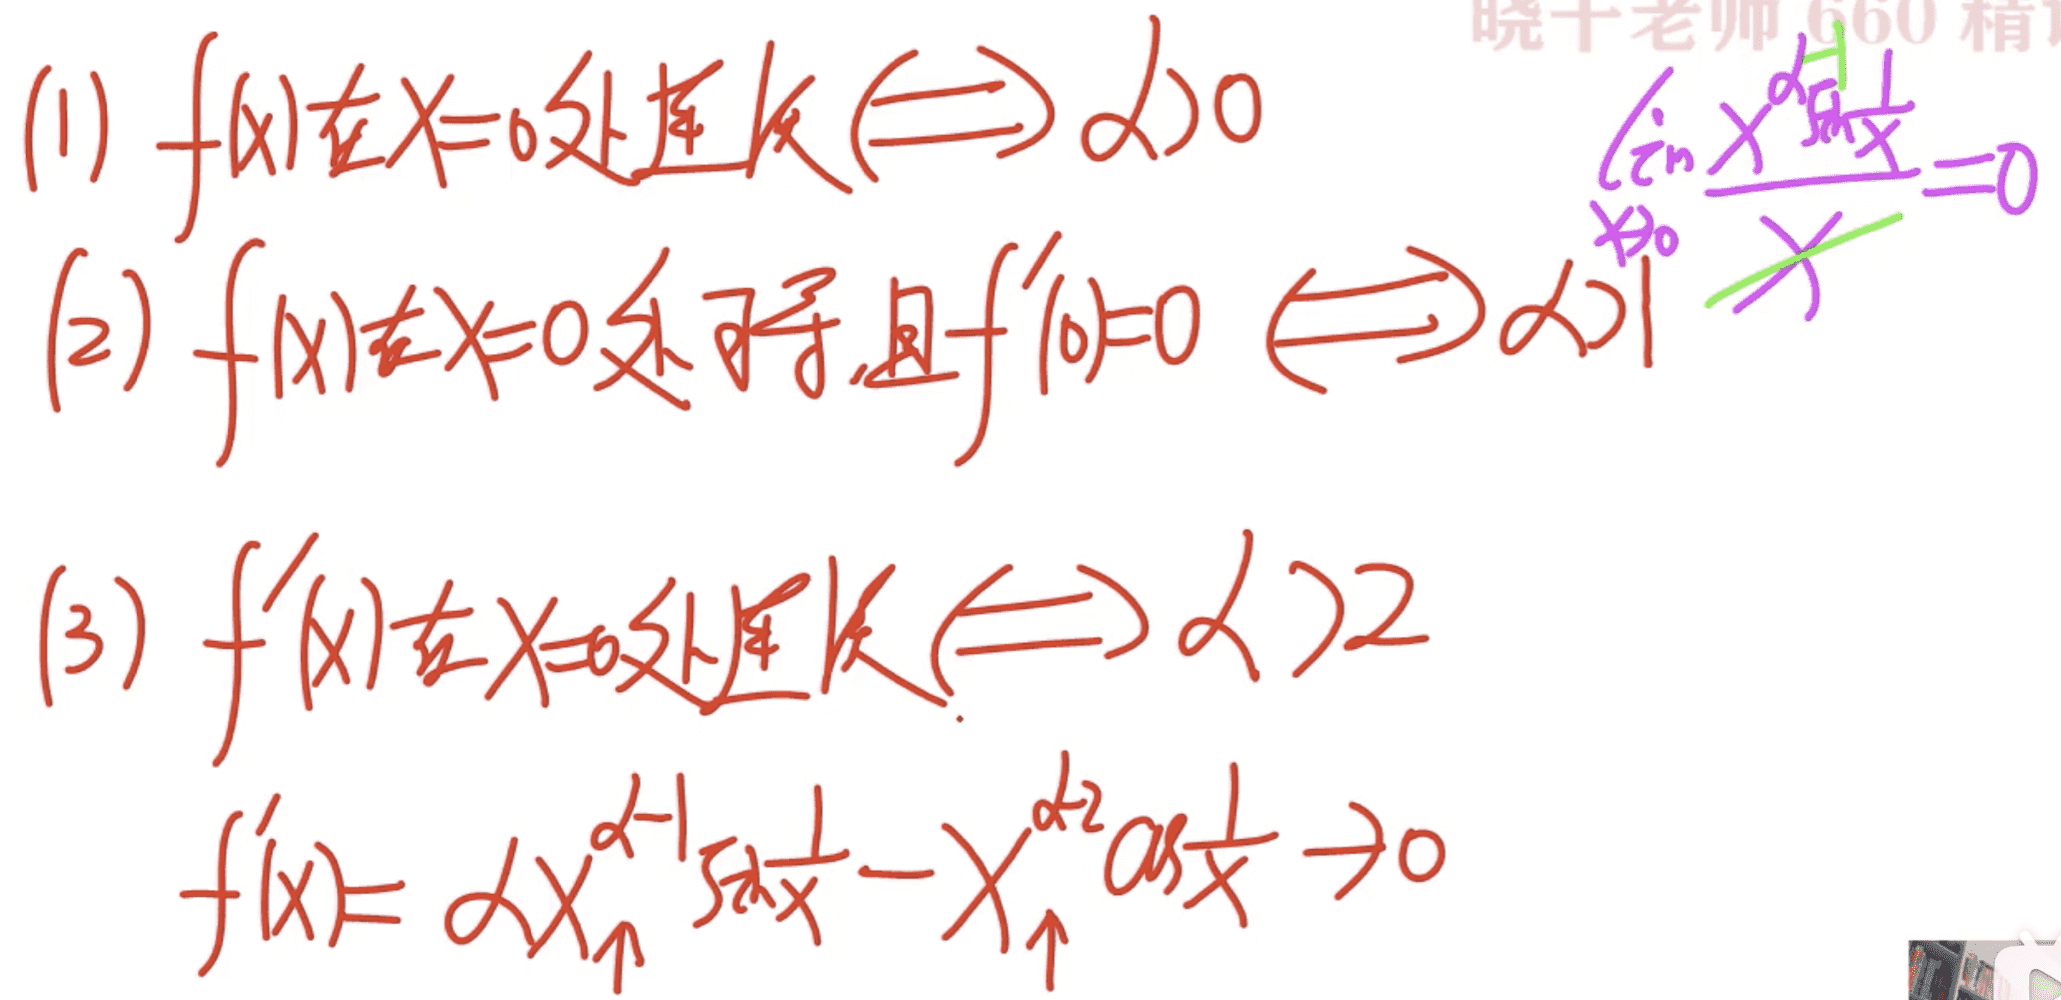 晓千老师 660 精
(1) f(x)在x=0处连续⟺α>0
lim x→0 x^α sin 1/x / x =0
(2) f(x)在x=0处可导,且f'(0)=0 ⟺α>1
(3) f'(x)在x=0处连续⟺α>2
f'(x)= αx^(α-1) sin 1/x - x^(α-2) cos 1/x →0